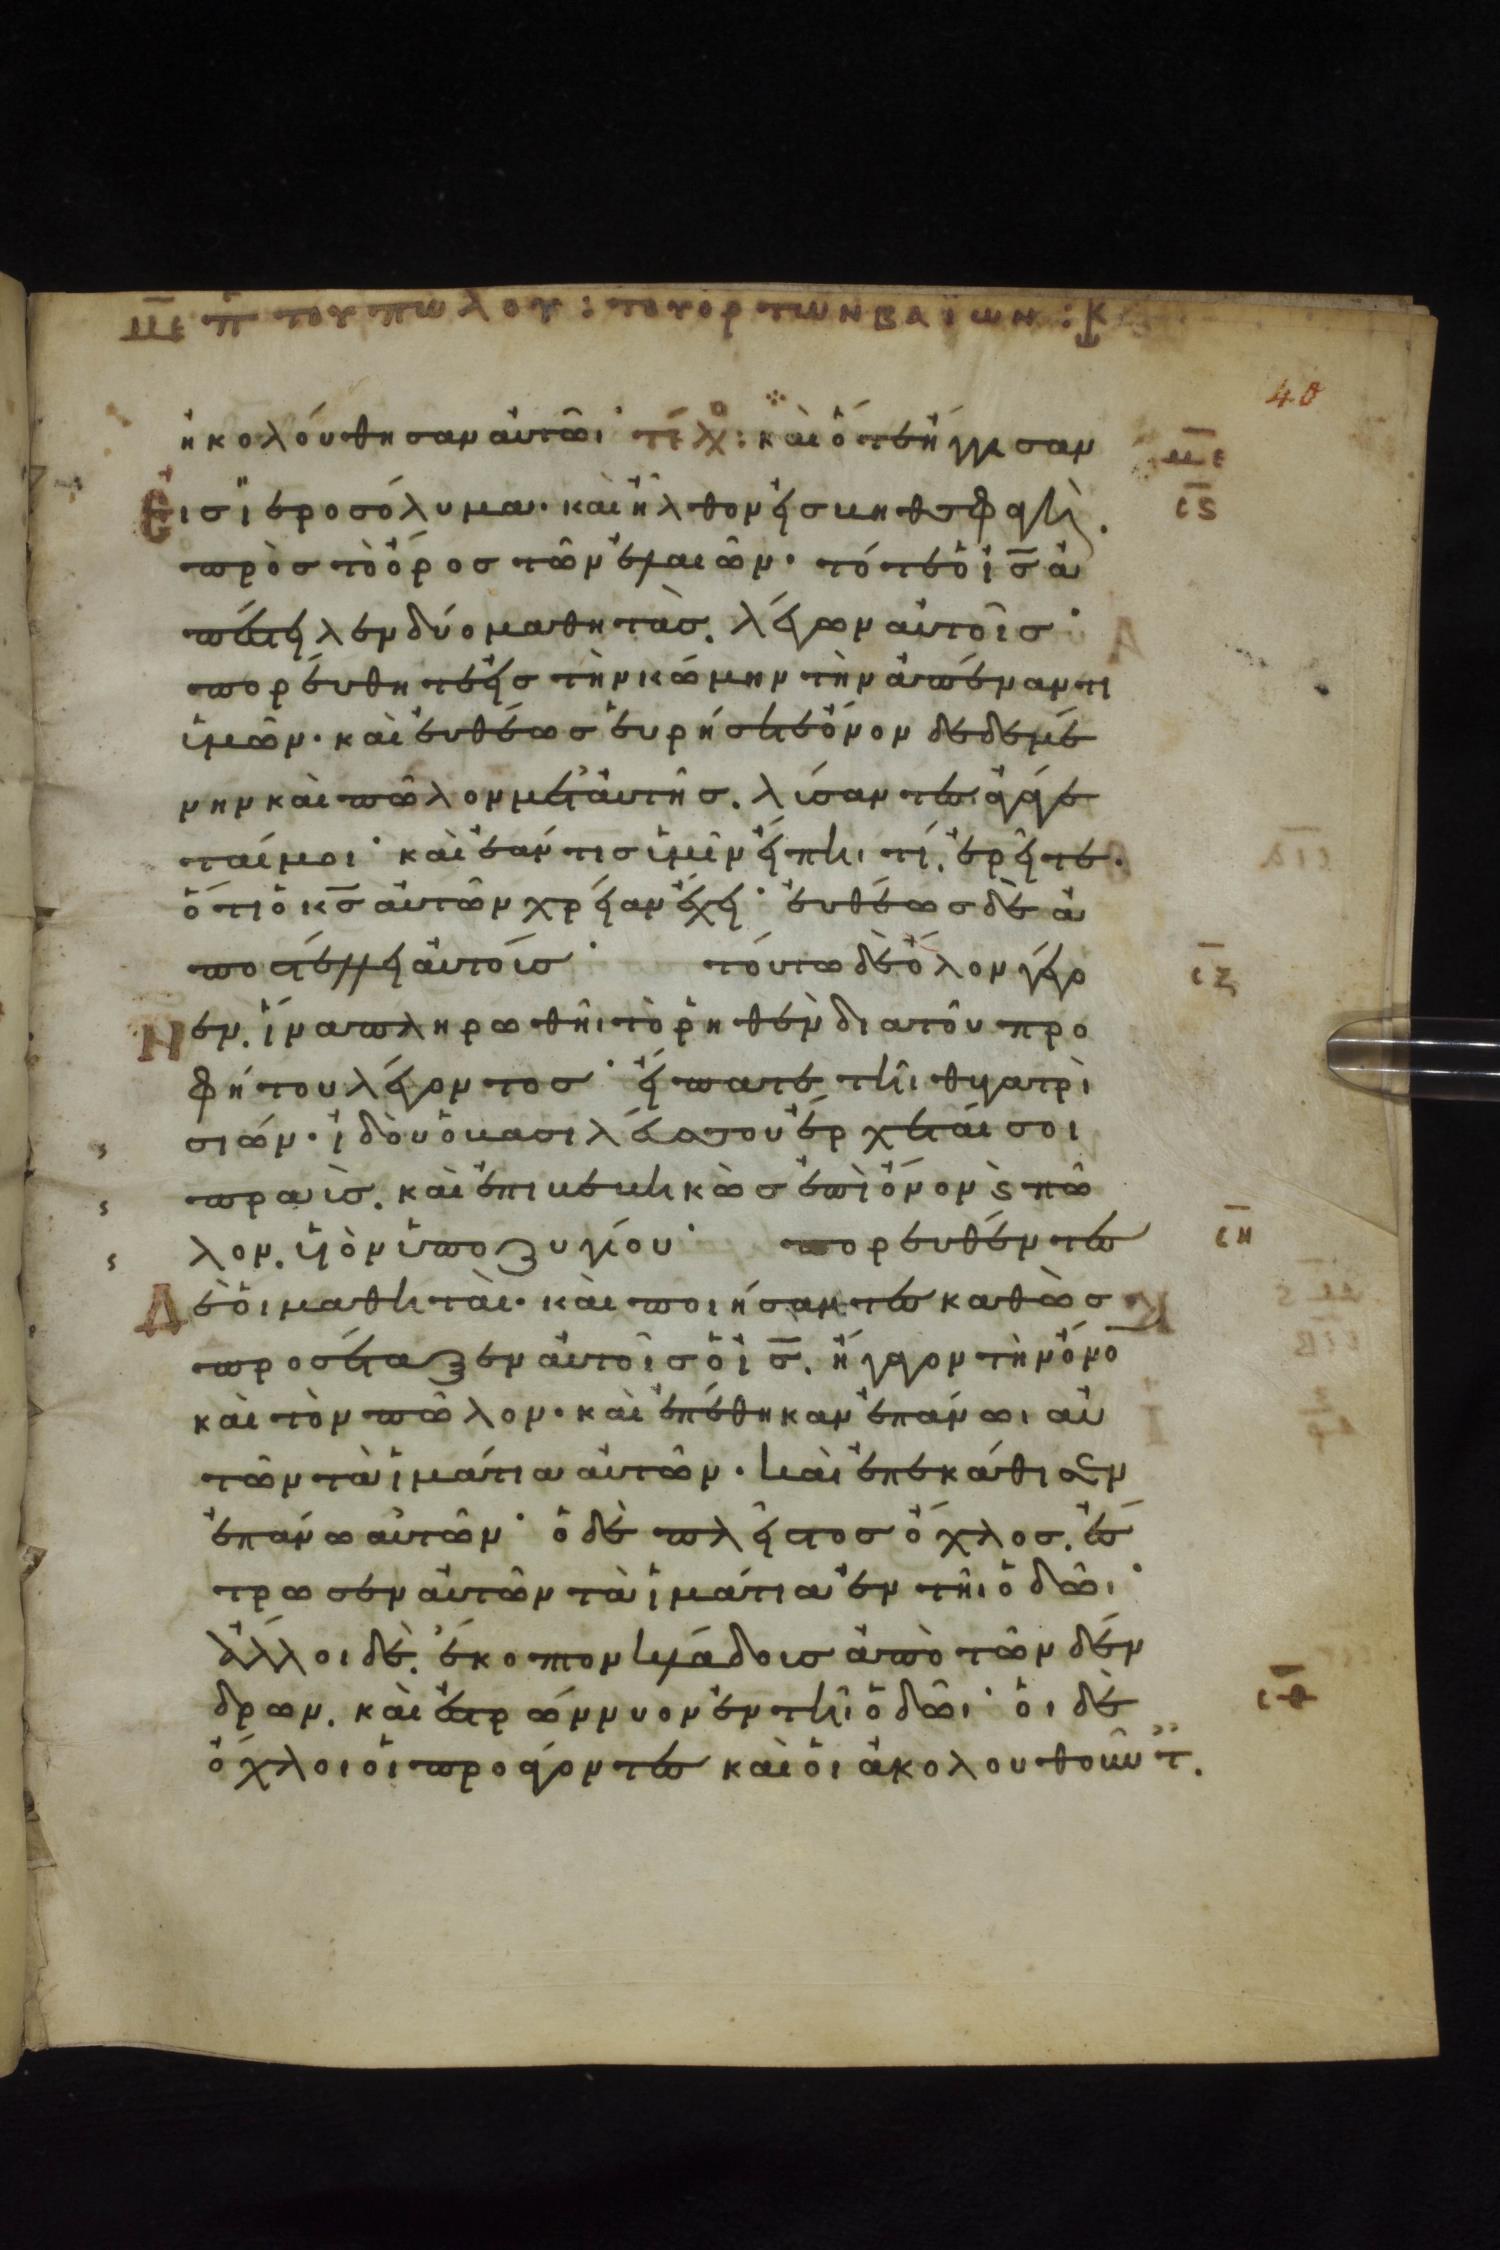 με πˉ του πωλου : του ορ των βαϊων :
40
ἠκολούθησαν αὐτῶι· τέλ : καὶ ὅτε ἤγγισαν
με
Εἰσ ϊεροσόλυμα· καὶ ἦλθον εἰσ βηθσφαγὴ.
σϛ
πρὸσ τὸ ὄροσ τῶν ἐλαιῶν· τότε ὁ ἰσ ἀ
πέστειλεν δύο μαθητὰσ. λέγων αὐτοῖσ·
πορεύθητε εἰσ τὴν κώμην τὴν ἀπέναντι
ὑμῶν· καὶ εὐθέωσ εὑρήσητε ὄνον δεδεμέ
νην καὶ πῶλον μετ᾽ αὐτῆσ. λύσαντεσ ἀγάγε
τέ μοι· καὶ ἐάν τισ ὑμῖν εἴπηι τί. ἐρεῖτε.
ὅτι ὁ κσ αὐτῶν χρείαν ἔχει· εὐθέωσ δὲ ἀ
ποστέλλει αὐτοίσ· τούτω δὲ ὅλον γέγο
σζ
Νεν. ἵνα πληρωθῆι τὸ ῥηθὲν διὰ τοῦ προ
φήτου λέγοντοσ· εἴπατε τῆι θυγατρὶ
σιών· ἰδοὺ ὁ βασιλεύσ σου ἔρχεταί σοι
πραὺσ. καὶ ἐπιβεβηκὼσ ἐπὶ ὄνον ϛ πῶ
λον. υἱὸν ὑποζυγίου· πορευθέντεσ
ση
Δὲ ὁι μαθηταὶ· καὶ ποιήσαντεσ καθὼσ
προσέταξεν αὐτοῖσ ὁ ἰσ. ἤγαγον τὴν ὄνο
καὶ τὸν πῶλον· καὶ ἐπέθηκαν ἐπάνωι αὐ
τῶν τὰ ἱμάτια αὐτῶν· καὶ ἐπεκάθισεν
ἐπάνω αὐτῶν· ὁ δὲ πλεῖστοσ ὄχλοσ. ἔσ
τρωσεν αὐτῶν τὰ ἱμάτια ἐν τῆι ὁδῶι·
ἄλλοι δὲ. ἔκοπτον κλάδουσ ἀπὸ τῶν δέν
δρων. καὶ ἐστρώννυον ἐν τῆι ὁδῶι· ὁι δὲ
σθ
ὄχλοι οἱ προάγοντεσ καὶ ὁι ἀκολουθοῦντ.